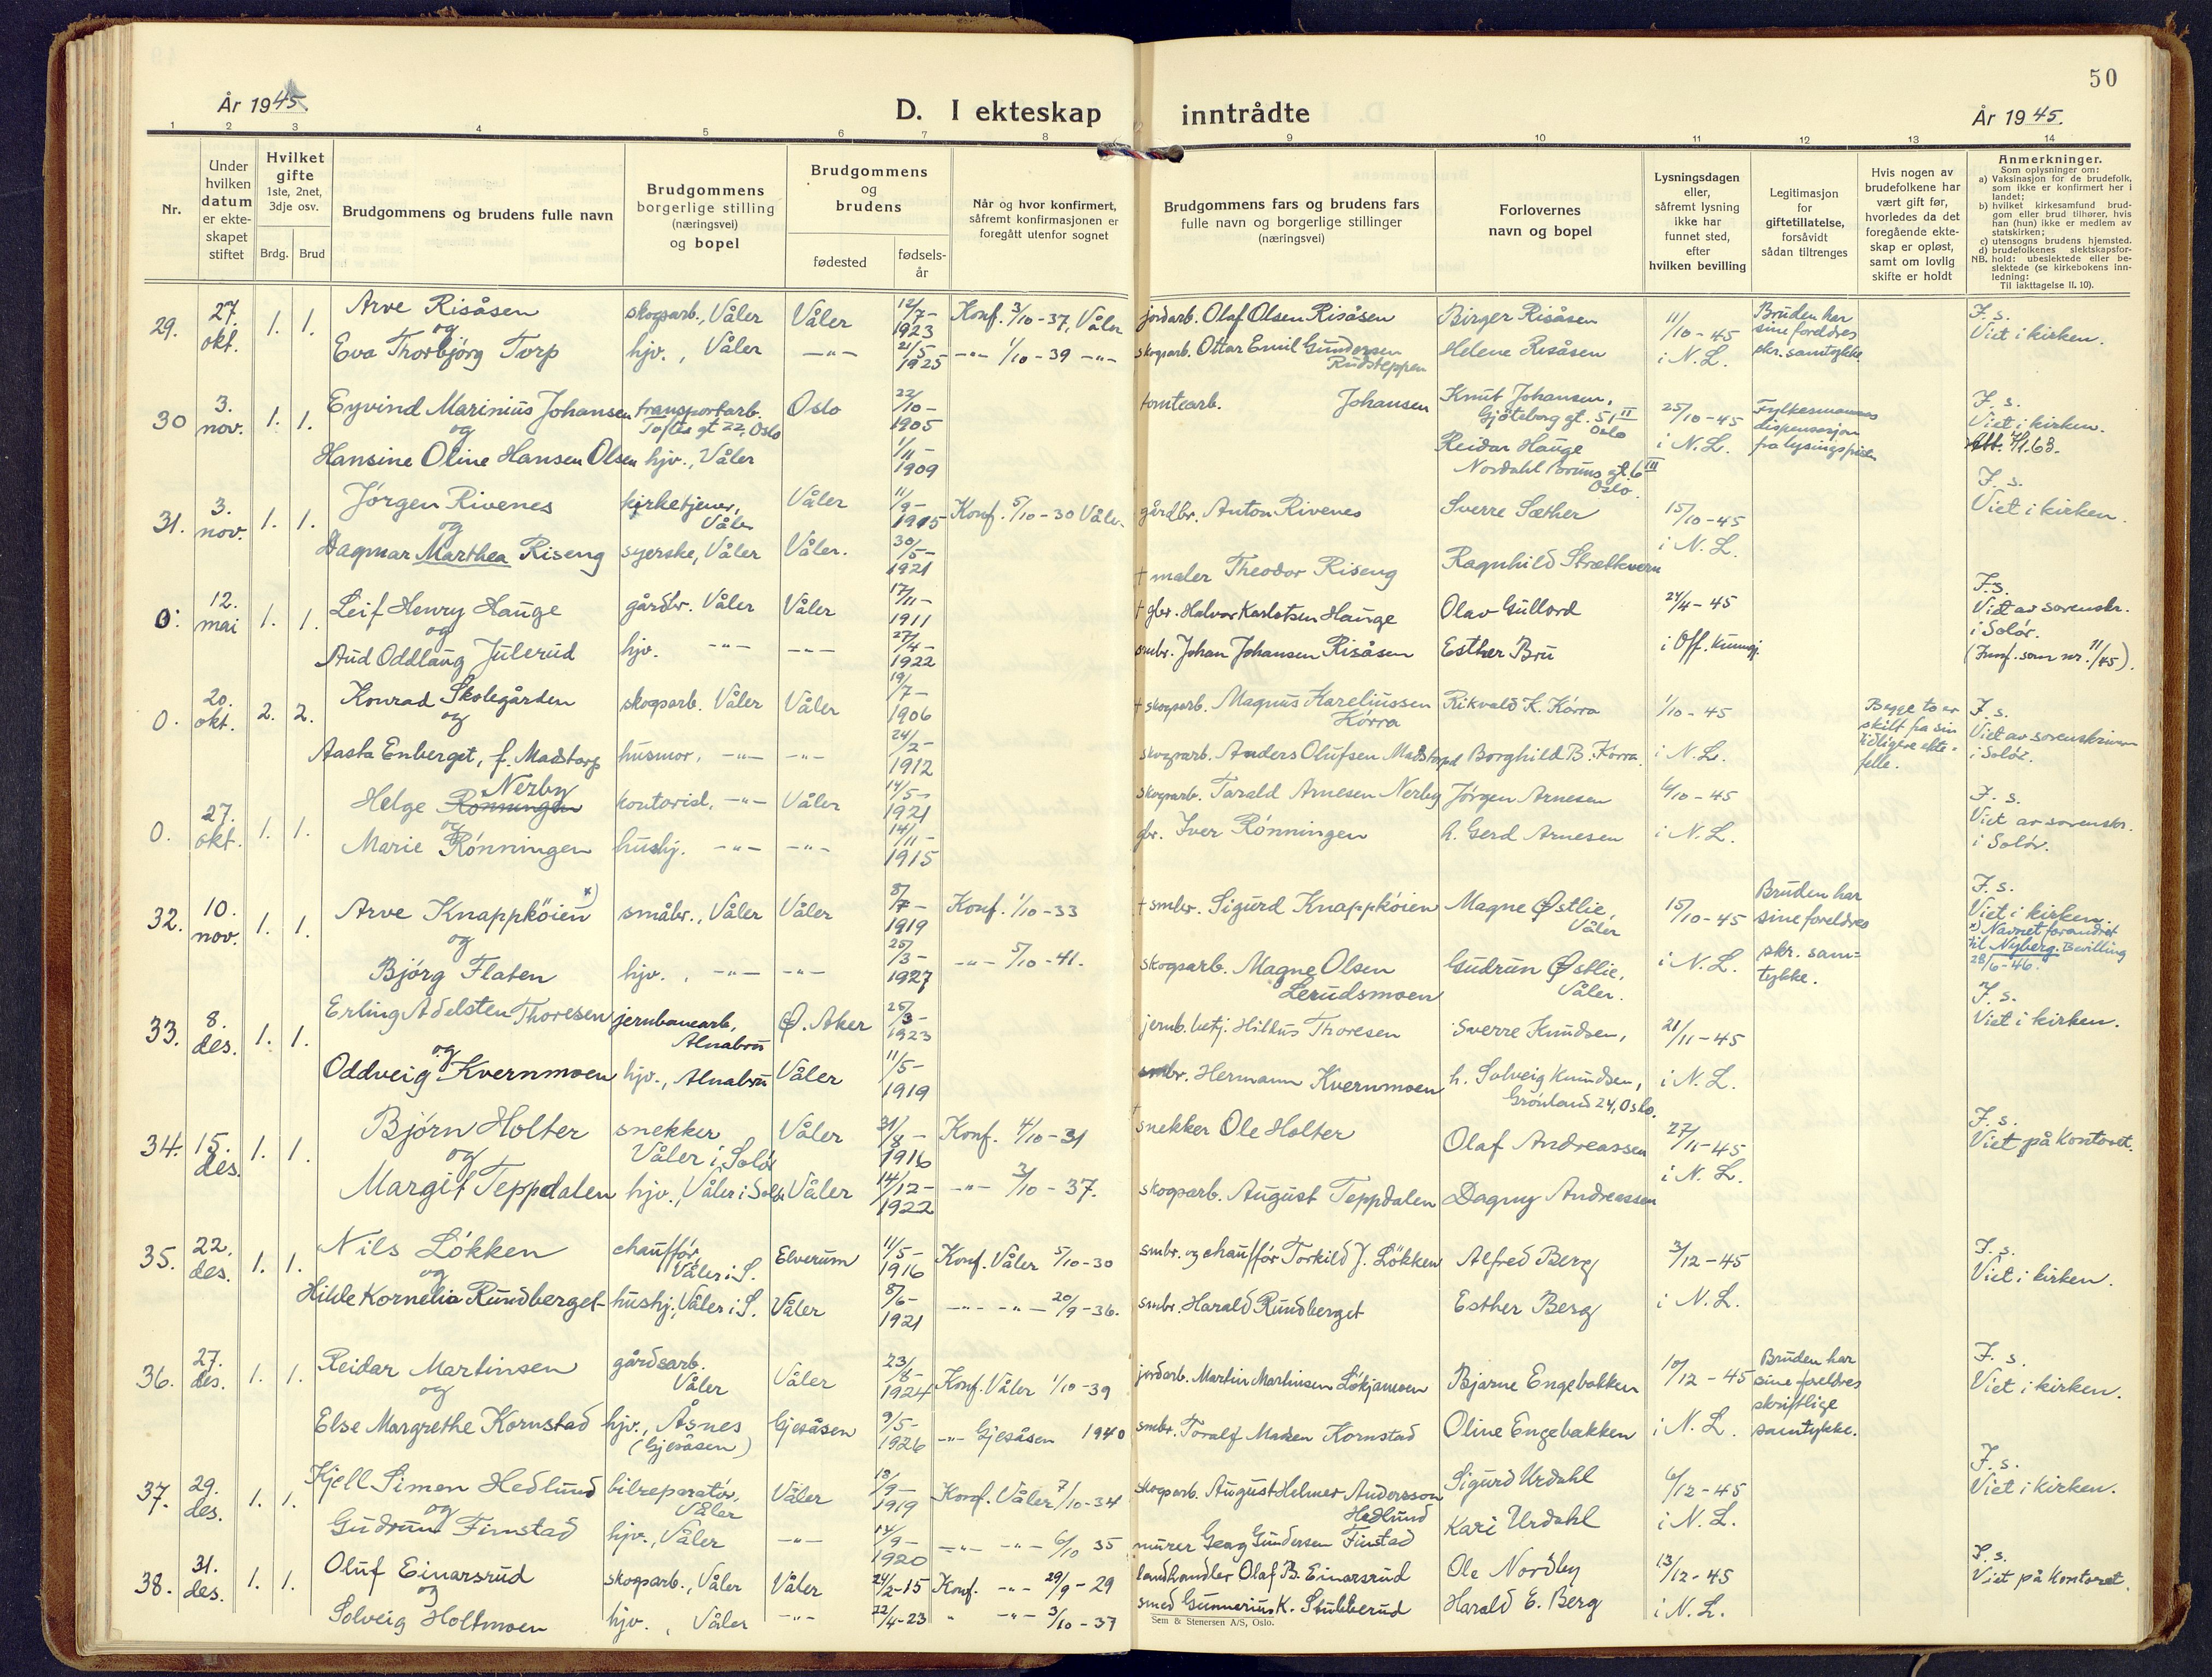 50
År 1945.
D. I ekteskap inntrådte
År 1945.
1 2 3 4 5 6 7 8 9 10 11 12 13 14
Nr.
Under hvilken datum er ekteskapet stiftet
Hvilket gifte 1ste, 2net, 3dje osv.
Brdg. Brud
Brudgommens og brudens fulle navn
Brudgommens borgerlige stilling (næringsvei) og bopel
Brudgommens og brudens
fødested
fødselsår
Når og hvor konfirmert, såfremt konfirmasjonen er foregått utenfor sognet
Brudgommens fars og brudens fars fulle navn og borgerlige stillinger (næringsvei)
Forlovernes navn og bopel
Lysningsdagen eller, såfremt lysning ikke har funnet sted, efter hvilken bevilling
Legitimasjon for giftetillatelse, forsåvidt sådan tiltrenges
Hvis nogen av brudefolkene har vært gift før, hvorledes da det foregående ekteskap er opløst, samt om lovlig skifte er holdt
Anmerkninger.
Som oplysninger om:
a) Vaksinasjon for de brudefolk, som ikke er konfirmert her i landet;
b) hvilket kirkesamfund brudgom eller brud tilhører, hvis han (hun) ikke er medlem av statskirken;
c) utensogns brudens hjemsted.
d) brudefolkenes slektskapsforhold: ubeslektede eller beslektede (se kirkebokens innledning:
NB.
Til iakttagelse II. 10).
29. 27. okt. 1. 1. Arve Risåsen skogsarb., Våler Våler 12/7-1923 Konf. 3/10-37, Våler jordarb. Olaf Olsen Risåsen Birger Risåsen 11/10-45 Bruden har sine foreldres skr. samtykke F. s. Viet i kirken.
og
Eva Thorbjørg Torp hjv., Våler -"- 21/5 1925 -"- 1/10-39 -"- skogsarb. Ottar Emil Gundersen Rudsteppen Helene Risåsen i N. L.
30 3. nov. 1. 1. Eyvind Marinius Johansen transportarb. Toftes gt 22, Oslo Oslo 22/10-1905 tomtearb. Johansen Knut Johansen, Gjöteborg gt. 51 II Oslo 25/10-45 Fylkesmannens dispensasjon fra lysingsfristen F. s. Viet i kirken. 7/1.63.
og
Hansine Oline Hansen Olsen hjv., Våler 1/11-1909 Reidar Hauge Nordahl Bruns gt. 6 III Oslo. i N. L.
31. 3. nov. 1. 1. Jørgen Rivenes kirketjener, Våler Våler 11/9-1915 Konf. 5/10-30 Våler gårdbr. Anton Rivenes Sverre Sæther 15/10-45 F. s. Viet i kirken.
og
Dagmar Marthea Riseng syerske, Våler Våler. 30/5-1921 + maler Theodor Riseng Ragnhild Strætkvern i N. L.
0: 12. mai 1. 1. Leif Henry Hauge gårdbr. Våler Våler 17/11-1911 + gbr. Halvor Karlotsen Hauge Olav Gullord 24/4-45 F.s. Viet av sorenskr. i Solør. (Jmf. som nr. 11/45).
og
Aud Oddlaug Julerud hjv. -"- -"- 27/4-1922 smbr. Johan Johansen Risåsen Esther Bru i Off. kunngj.
0. 20. okt. 2. 2. Konrad Skolegården skogsarb. Våler Våler 19/7-1906 + skogsarb. Magnus Kareliussen Kórra Rikvald K. Kórra 1/10-45 Begge to er skilt fra sin tidligere ektefelle. F. s. Viet av sorenskriveren i Solør.
og
Aasta Enberget, f. Madstorp husmor, -"- -"- 24/2-1912 skogsarb. Anders Olufsen Madstorp Borghild B. Kórra. i N. L.
0. 27. okt. 1. 1. Helge Rønningen Nerby kontorist, -"- Våler 14/5-1921 skogsarb. Tarald Arnesen Nerby Jørgen Arnesen 6/10-45 F. s. Viet av sorenskr. i Solør.
og
Marie Rønningen hushj. -"- -"- 14/11 1915 gbr. Iver Rønningen h. Gerd Arnesen i N. L.
32. 10. nov. 1. 1. Arve Knappköien x) småbr., Våler Våler 8/7-1919 Konf. 1/10-33 + smbr. Sigurd Knappkøien Magne Østlie, Våler 15/10-45 Bruden har sine foreldres skr. samtykke. F. s. Viet i kirken. x) Navnet forandret til Nyberg. Bevilling 28/6-46.
og
Bjørg Flaten hjv., -"- -"- 25/3-1927 -"- 5/10-41. skogsarb. Magne Olsen Lerudsmoen Gudrun Østlie, Våler. i N. L.
33. 8. des. 1. 1. Erling Adelsten Thoresen jernbanearb, Alnabru Ø. Aker 25/3-1923 jernb. betj. Hilkus Thoresen Sverre Knudsen, 21/11-45 F. s. Viet i kirken.
og
Oddveig Kvernmoen hjv., Alnabru Våler 11/5-1919 smbr. Hermann Kvernmoen h. Solveig Knudsen, Grønland 24, Oslo. i N. L.
34. 15. des. 1. 1. Bjørn Holter snekker Våler i Solør Våler 31/8-1916 Konf. 4/10-31 + snekker Ole Holter Olaf Andreassen 27/11-45 F. s. Viet på kontoret.
og
Margit Teppdalen hjv., Våler i Solør Våler 14/12-1922 -"- 3/10-37. skogsarb. August Teppdalen Dagny Andreassen i N. L.
35. 22. des. 1. 1. Nils Løkken chauffør, Våler i S. Elverum 11/5-1916 Konf. Våler 5/10-30 smbr. og chauffør Torkild J. Løkken Alfred Berg 3/12-45 F. s. Viet i kirken.
og
Hilde Kornelia Rundberget hushj., Våler i S. Våler 8/6-1921 -"- -"- 20/9-36. smbr. Harald Rundberget Esther Berg i N. L.
36. 27. des. 1. 1. Reidar Martinsen gårdsarb. Våler Våler 23/8-1924 Konf. Våler 1/10-39 jordarb. Martin Martinsen Løkjamoen Bjarne Engebakken 10/12-45 Bruden har sine foreldres skriftlige samtykke. F. s. Viet i kirken.
og
Else Margrethe Kornstad hjv., Åsnes (Gjesåsen) Gjesåsen 9/5-1926 -"- Gjesåsen 1940 smbr. Toralf Madsen Kornstad Oline Engebakken i N. L.
37. 29. des. 1. 1. Kjell Simen Hedlund bilreparatør, Våler Våler 18/9-1919 Konf. Våler 7/10-34 skogsarb. August Helmer Andersson Hedlund Sigurd Urdahl 6/12-45 F. s. Viet i kirken.
og
Gudrun Finstad hjv., Våler -"- 14/9-1920 -"- -"- 6/10 35 murer Georg Gundersen Finstad Kari Urdahl i N. L.
38. 31. des. 1. 1. Oluf Einarsrud skogsarb., Våler Våler 24/2-15 Konf. -"- 29/9-29 landhandler Olaf B. Einarsrud Ole Nordby 13/12-45 F. s. Viet på kontoret.
og
Solveig Holtmoen hjv., Våler -"- 22/4-23 " -"- 3/10-37 smed Gunnerius K. Stubberud Harald E. Berg i N. L.
Sem & Stenersen A/S, Oslo.